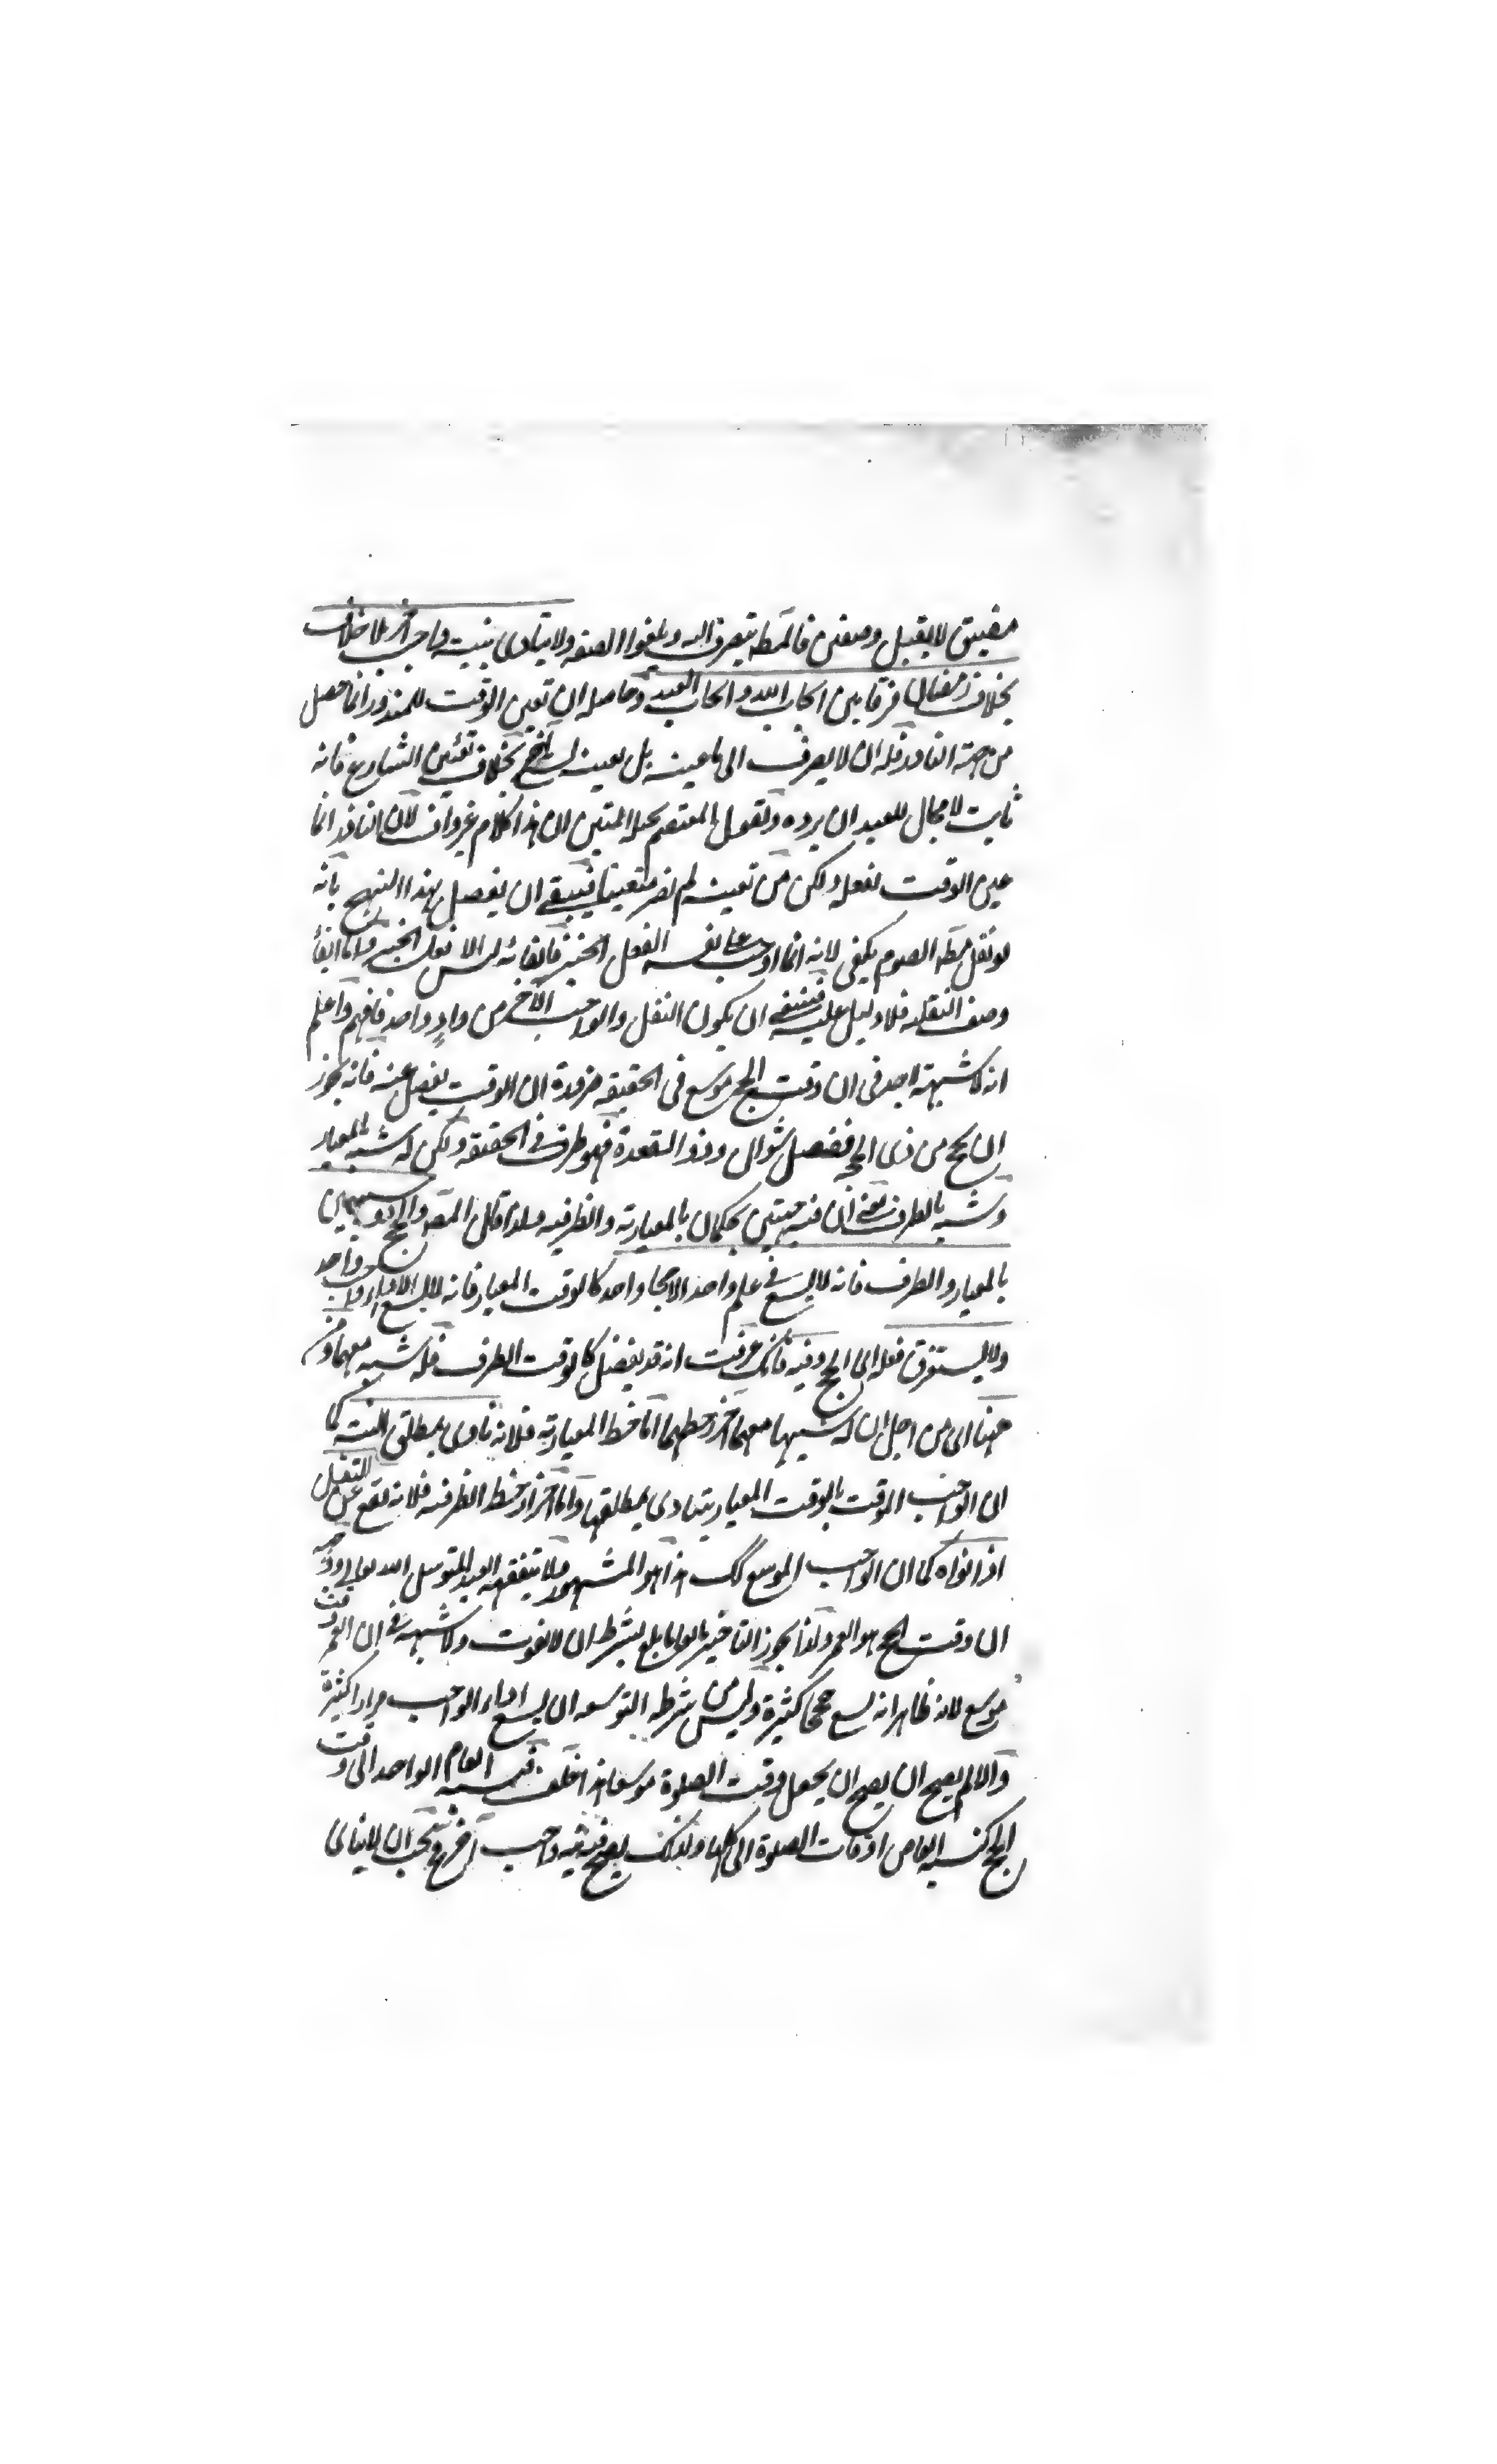 مضيق لا يقبل وصفين فالمطه يتصرف اليه ويلغوا الصفه ولا يتادى بنيت واجب آخر لا خلاف
بخلاف رمضان فرقا بين ايجاب الله وايجاب العبد وحاصله ان تعين الوقت للمنذور انما حصل
من جهة الناذر فله ان لا يصرف الى ما عينه بل يعينه بخلاف تعيين الشارع فانه
ثابت لا مجال للعبد ان يرده ونقول المعتصم بحبله المتين ان هذا كلام غير واف لان الناذر انما
عين الوقت لفعله ولكن من تعينه لم يصر متعينا فينبغي ان يفصل بهذا النهج بانه
لو نقل مطه الصوم يكفى لانه انما اوجب على نفسه الفعل الجنس فايفائه ليس الا فعل الجنس واما ايفاء
وصف النفليه فلا دليل عليه فينبغي ان يكون النفل والواجب الآخر من واد واحد فافهم واعلم
انه لا شبهة لاحد في ان وقت الحج موسع في الحقيقه ضرورة ان الوقت يفضل عنه فانه يجوز
ان يحج من ذى الحجه فيفضل شوال وذو القعدة فهو ظرف في الحقيقه ولكن له شبه بالمعيار
وشبه بالظرف يعني ان فيه جهتين يحكمان بالمعياريه والظرفيه ولذا قال المصه والحج ذو شبهين
بالمعيار والظرف فانه لا يسع في عام واحد الا حجا واحدا كالوقت المعيار فانه لا يسع الا اداء واجب واحد
ولا يستغرق فعله اى الحج وقته فانك عرفت انه قد يفضل كالوقت الظرف فله شبه معهما ومن
ههنا اى من اجل ان له شبها معهما اخذ حظهما اما حظ المعيارية فلانه تادى بمطلق النية كما
ان الواجب الموقت بالوقت المعيار يتادى بمطلقها واما احراز حظ الظرفيه فلانه تقع عن النفل
اذا نواه كما ان الواجب الموسع كك هذا هو المشهور وما يتفقهه العبد المتوسل الى الله تعالى
ان وقت الحج هو العمر ولذا يجوز التاخير بالغا ما بلغ بشرط ان لا يفوت ولا شبهة في ان العمر وقت
موسع لانه ظاهر انه يسع حججا كثيرة وليس من شرطه التوسعه ان يسع اداء الواجب مرارا كثيرة
والا لم يصح ان يصح ان يجعل وقت الصلوة موسعا هذا خلف فنسبه العام الواحد الى وقت
الحج كنسبه الخاص اوقات الصلوة الى كلها ولذلك يصح فيه نيه واجب آخر ويجب ان لا يتادى